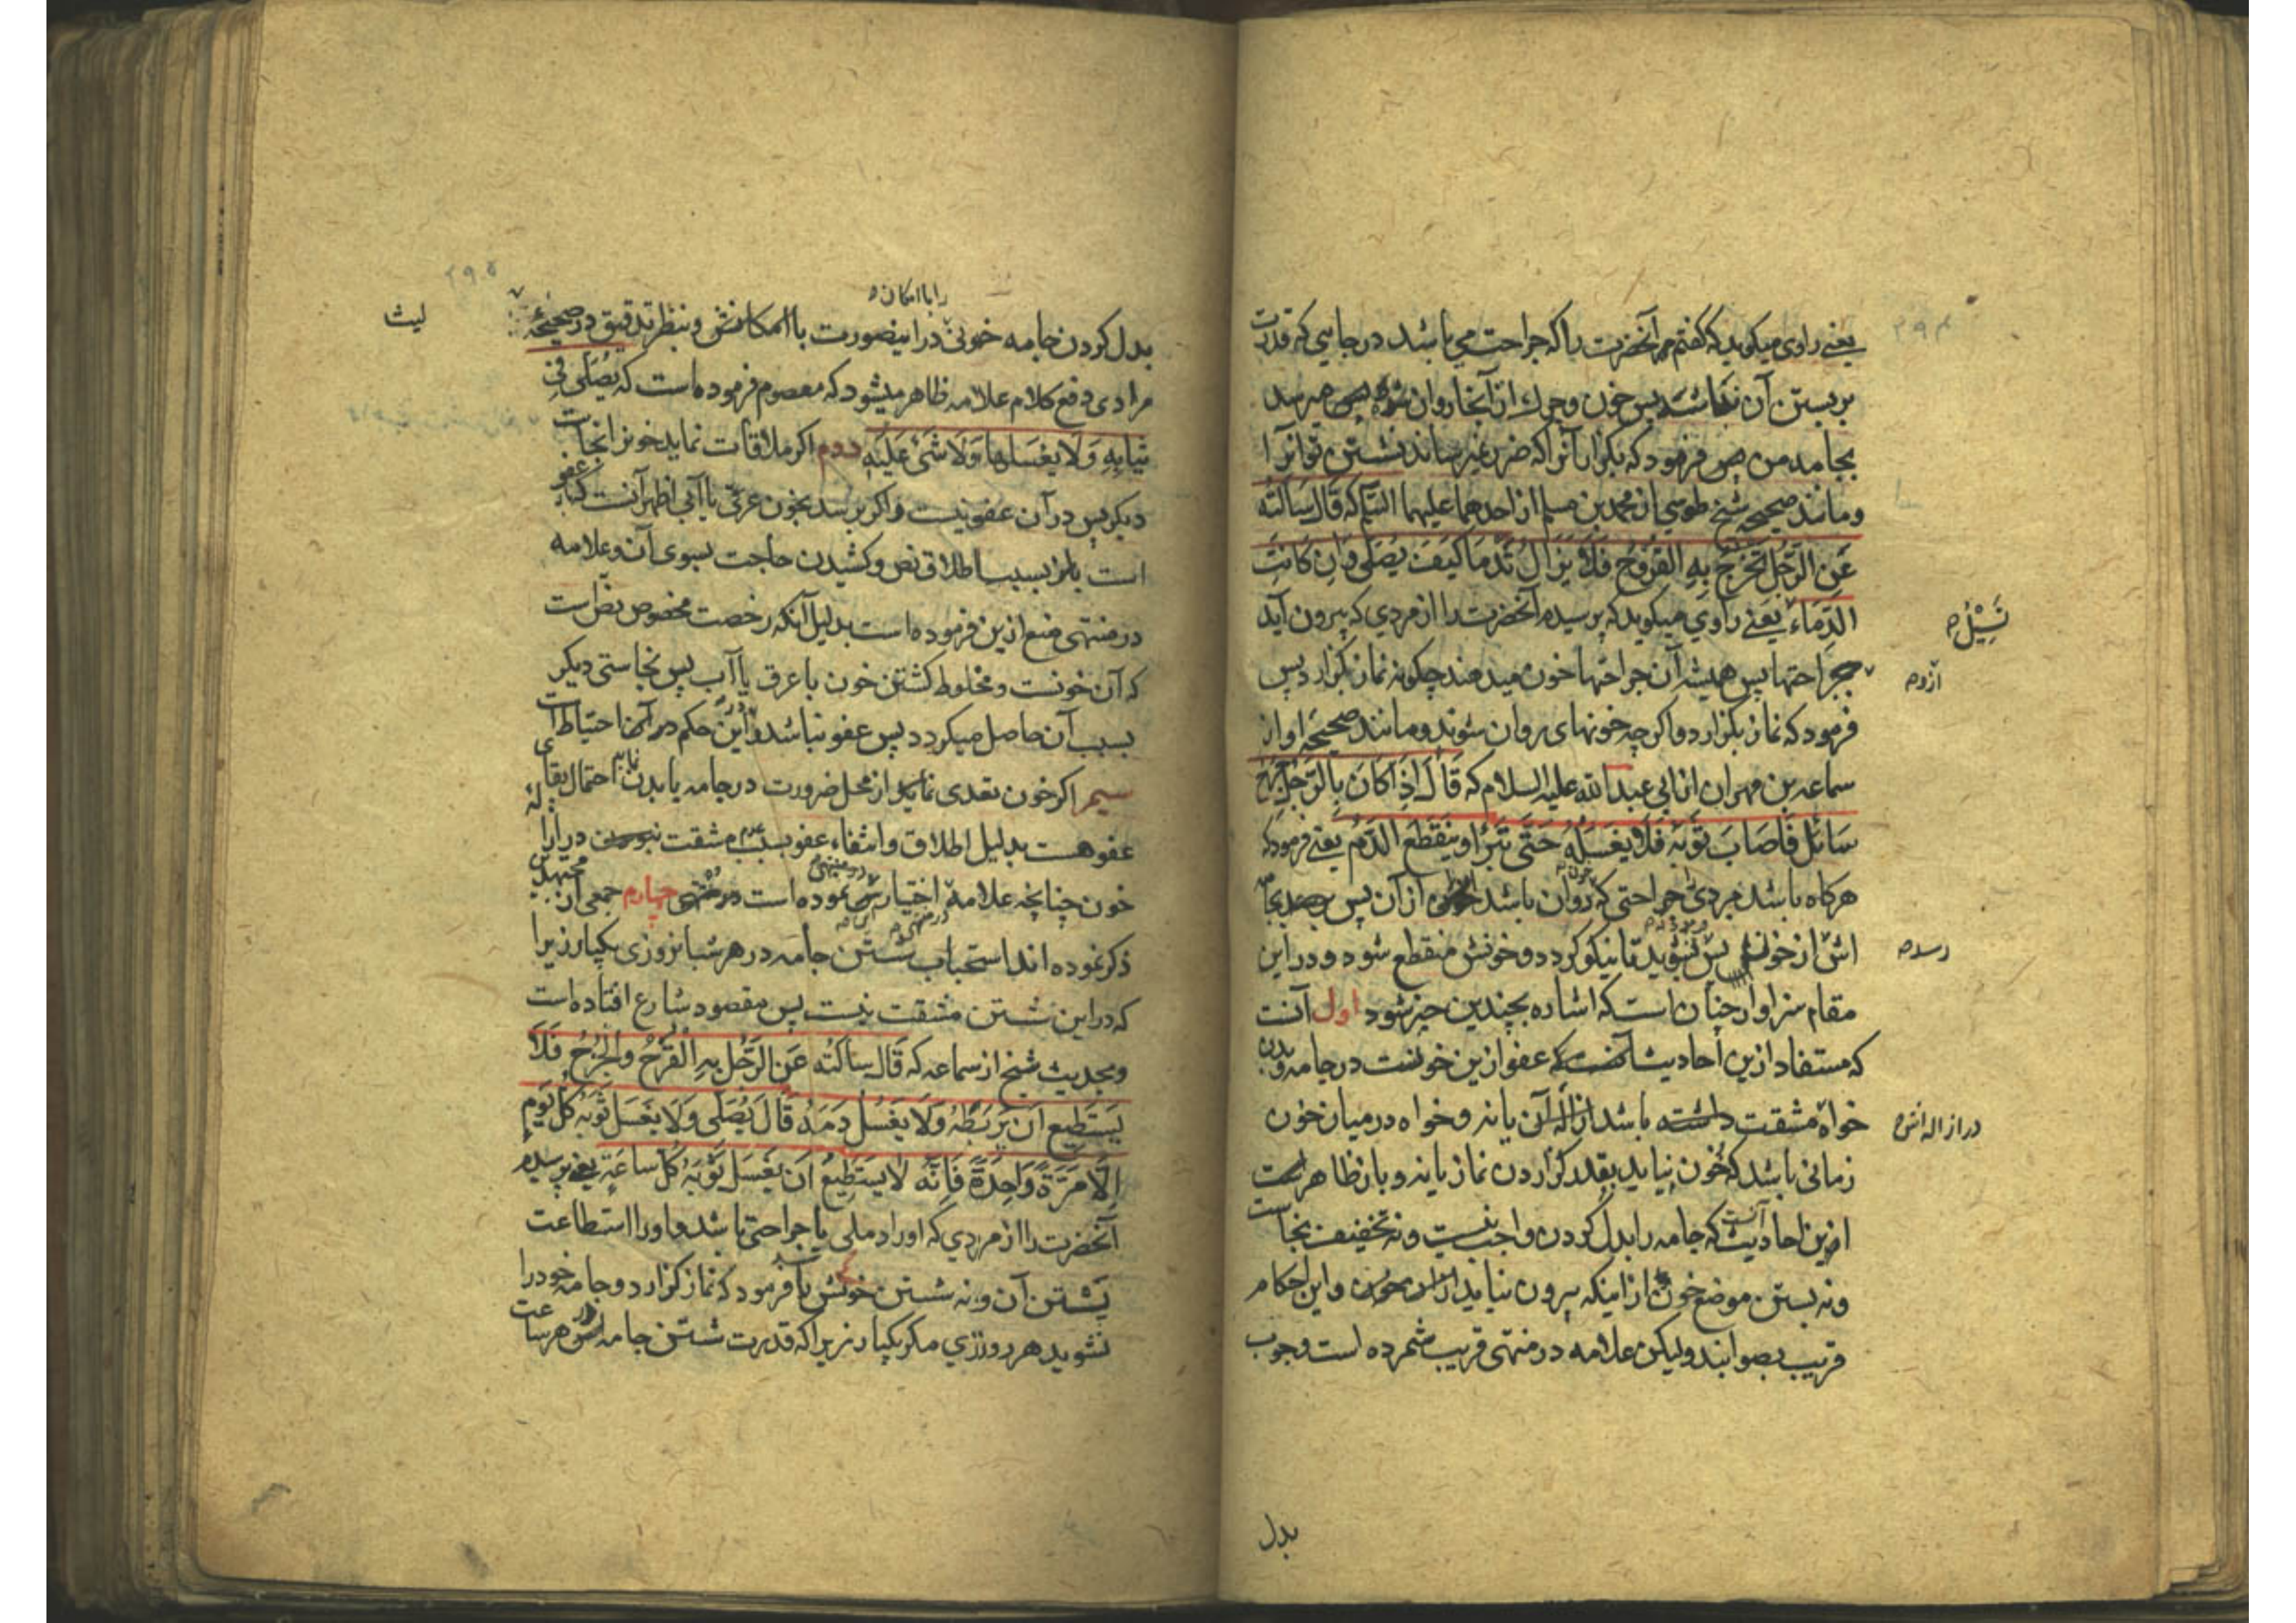 یعنے راوی میکوید که کفتم مر آنحضرت را که جراحت می باشد در جایی که قدرت
بر بستن آن نباشد پس خون و چرك از آنجا روان شود میرسد
بجامه من پس فرمود که بکزار آنرا که ضرر نمیرساند نشستن تو آنرا
و مانند صحیحه شیخ طوسی از محمد بن مسلم از احدهما علیهما السّلم که قَالَ سَاَلْتُه
عَنِ الرَّجُلِ تَخْرُجُ بِهِ القُرُوحُ فَلاَ یَزَالُ تُدْمَا کَیْفَ یُصَلّی وَاِن کَانَتِ
الدِّمَاءُ یعنے راوی میکوید که پرسیدم آنحضرت را از مردی که بیرون آید
جراحتها پس همیشه آن جراحتها خون میدهند چکونه نماز بکزارد پس
فرمود که نماز بکزارد و اکرچه خونهای روان شوند و مانند صحیحه او از
سماعه بن مهران از ابی عبد الله علیه السلام که قَالَ اِذَا کَانَ بِالرَّجُلِ جُرْحٌ
سَائلٌ فَاَصَابَ ثَوْبَهُ فَلاَ یَغْسِلْهُ حَتَّی یَبْرَأ و یَنْقَطِعَ الدَّمُ یعنے فرمود که
هرکاه باشد مردی جراحتی که روان باشد از آن پس بجامه
اش از خون پس نشوید تا نیکو کردد و خونش منقطع شود و در این
مقام سزاوار چنان است که اشاره بچندین چیز شود اول آنست
که مستفاد ازین احادیث که عفو ازین خونست در جامه و بدن
خواه مشقت باشد یا نه و خواه در میان خون
زمانی باشد که خون نیاید بقدر کزاردن نماز یا نه و باز ظاهر است
ازین احادیث آنست که جامه را بدل کردن واجب نیست و نه تخفیف نجاست
و نه بستن موضع خون از اینکه بیرون نیاید و این احکام
قریب بصوابند ولیکن علامه در منتهی قریب شمرده است وجوب
تَسِیْلُ
ازو
رسد
در ازاله اش
بدل
را با امکان
بدل کردن جامه خونی در اینصورت با امکانش و بنظر تدقیق در صحیحهٔ
لیث
مرادی دفع کلام علامه ظاهر میشود که معصوم فرموده است که یُصَلّی فی
ثیَابِهِ وَلَا یَغْسِلهَا وَلَا شَیْءَ عَلَیْهِ دوم اکر ملاقات نماید خونرا نجاست
دیکر پس در آن عفو نیست و اکر برسد بخون عرقی یا آبی اظهر آنست که عفو
است بسبب اطلاق نص و کشیدن حاجت بسوی آن و علامه
در منتهی منع ازین فرموده است بدلیل آنکه رخصت مخصوص نص است
که آن خونست و مخلوط کشتن خون با عرق یا آب پس نجاستی دیکر
بسبب آن حاصل میکردد پس عفو نباشد و این حکم در آنها احتیاط است
سیم اکر خون تعدی نماید از محل ضرورت در جامه یا بدن احتمال بقای
عفو هست بدلیل اطلاق و انتفاء عفو بسبب عدم مشقت در ازاله
خون چنانچه علامه اختیارش نموده است در منتهی چهارم جمعی از مجتهدین
ذکر نموده اند استحباب شستن جامه در هر شبانروزی یکبار زیرا
که در این شستن مشقت نیست پس مقصود شارع افتاده است
و بحدیث شیخ از سماعه که قَالَ سَاَلْتُه عَنِ الرَّجُلِ بِهِ القُرْحُ وَالْجُرْحُ فَلَا
یَسْتَطِیعُ اَن یَرْبطَهُ وَلَا یَغْسُلُ دَمَهُ قَالَ یُصَلّی وَلَا یَغْسَلُ ثَوْبَهُ کُلَّ یَوْمٍ
اِلَّا مَرَّةً وَاحِدَةً فَاِنَّه لا یَسْتَطِیعُ اَن یَغْسَلَ ثَوْبَهُ کُلَّ سَاعَةٍ یعنے پرسیدم
آنحضرت را از مردی که او را دملی یا جراحتی باشد و او را استطاعت
بستن آن و نه شستن خونش فرمود که نماز کزارد و جامه خود را
نشوید هر روزی مکر یکبار زیرا که قدرت شستن جامه هر ساعت